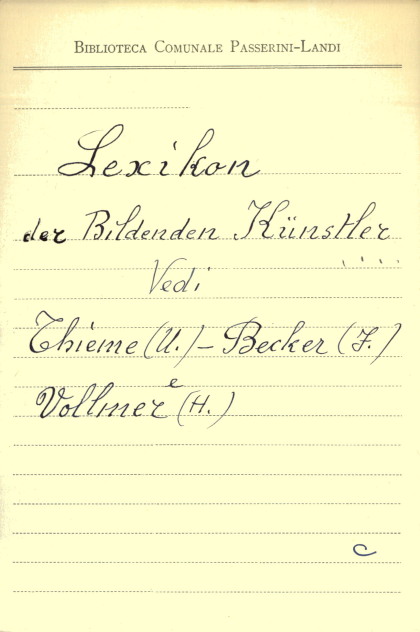 BIBLIOTECA COMUNALE PASSERINI-LANDI
Lexikon
der Bildenden Künstler
Vedi
Thieme (U.) - Becker (F.)
e
Vollmer (H.)
C